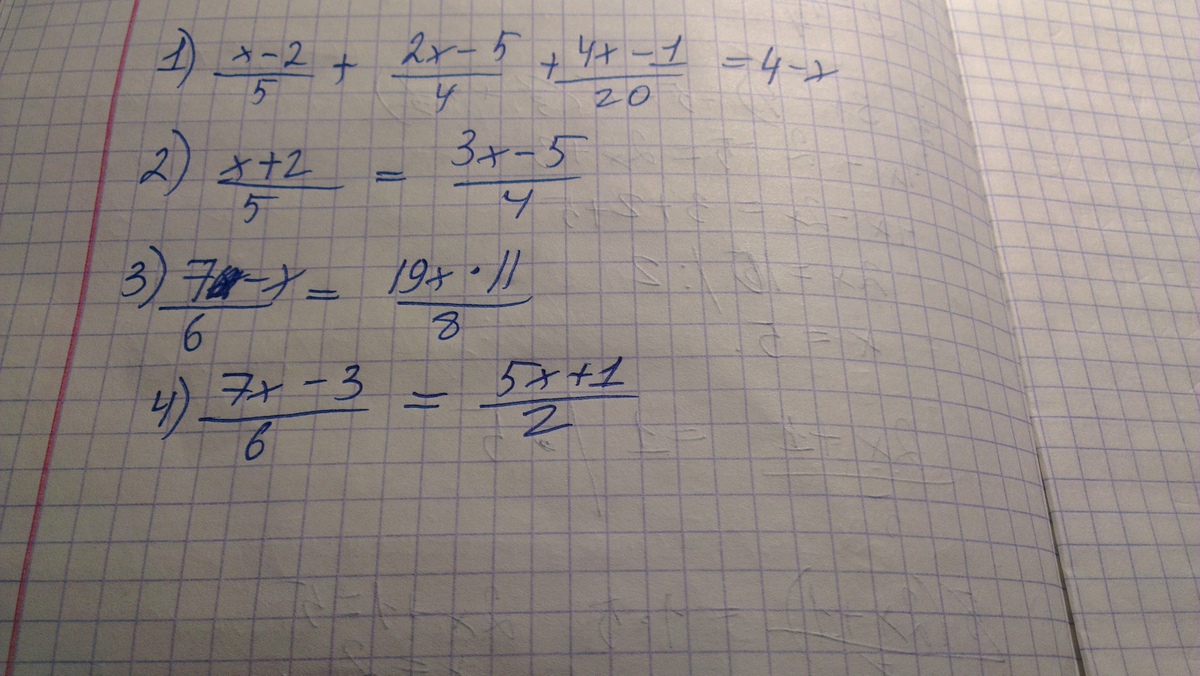 1) (x-2)/5 + (2x-5)/4 + (4x-1)/20 = 4-x
2) (x+2)/5 = (3x-5)/4
3) (7-x)/6 = (19x·11)/8
4) (7x-3)/6 = (5x+1)/2